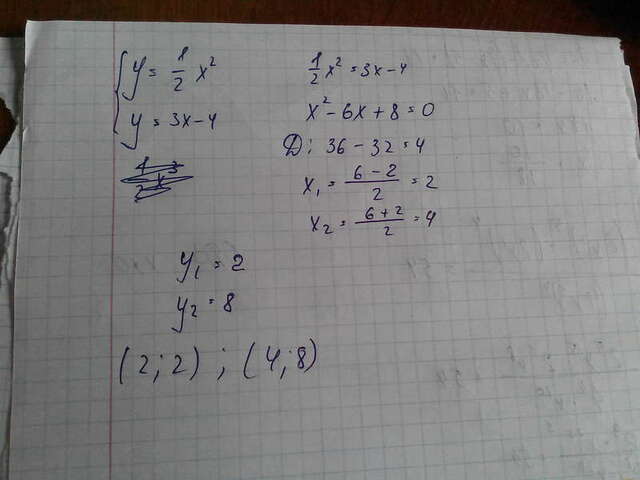 y = 1/2 x²
y = 3x-4
1/2 x² = 3x-4
x² - 6x + 8 = 0
D: 36 - 32 = 4
x₁ = (6-2)/2 = 2
x₂ = (6+2)/2 = 4
y₁ = 2
y₂ = 8
(2;2) ; (4;8)